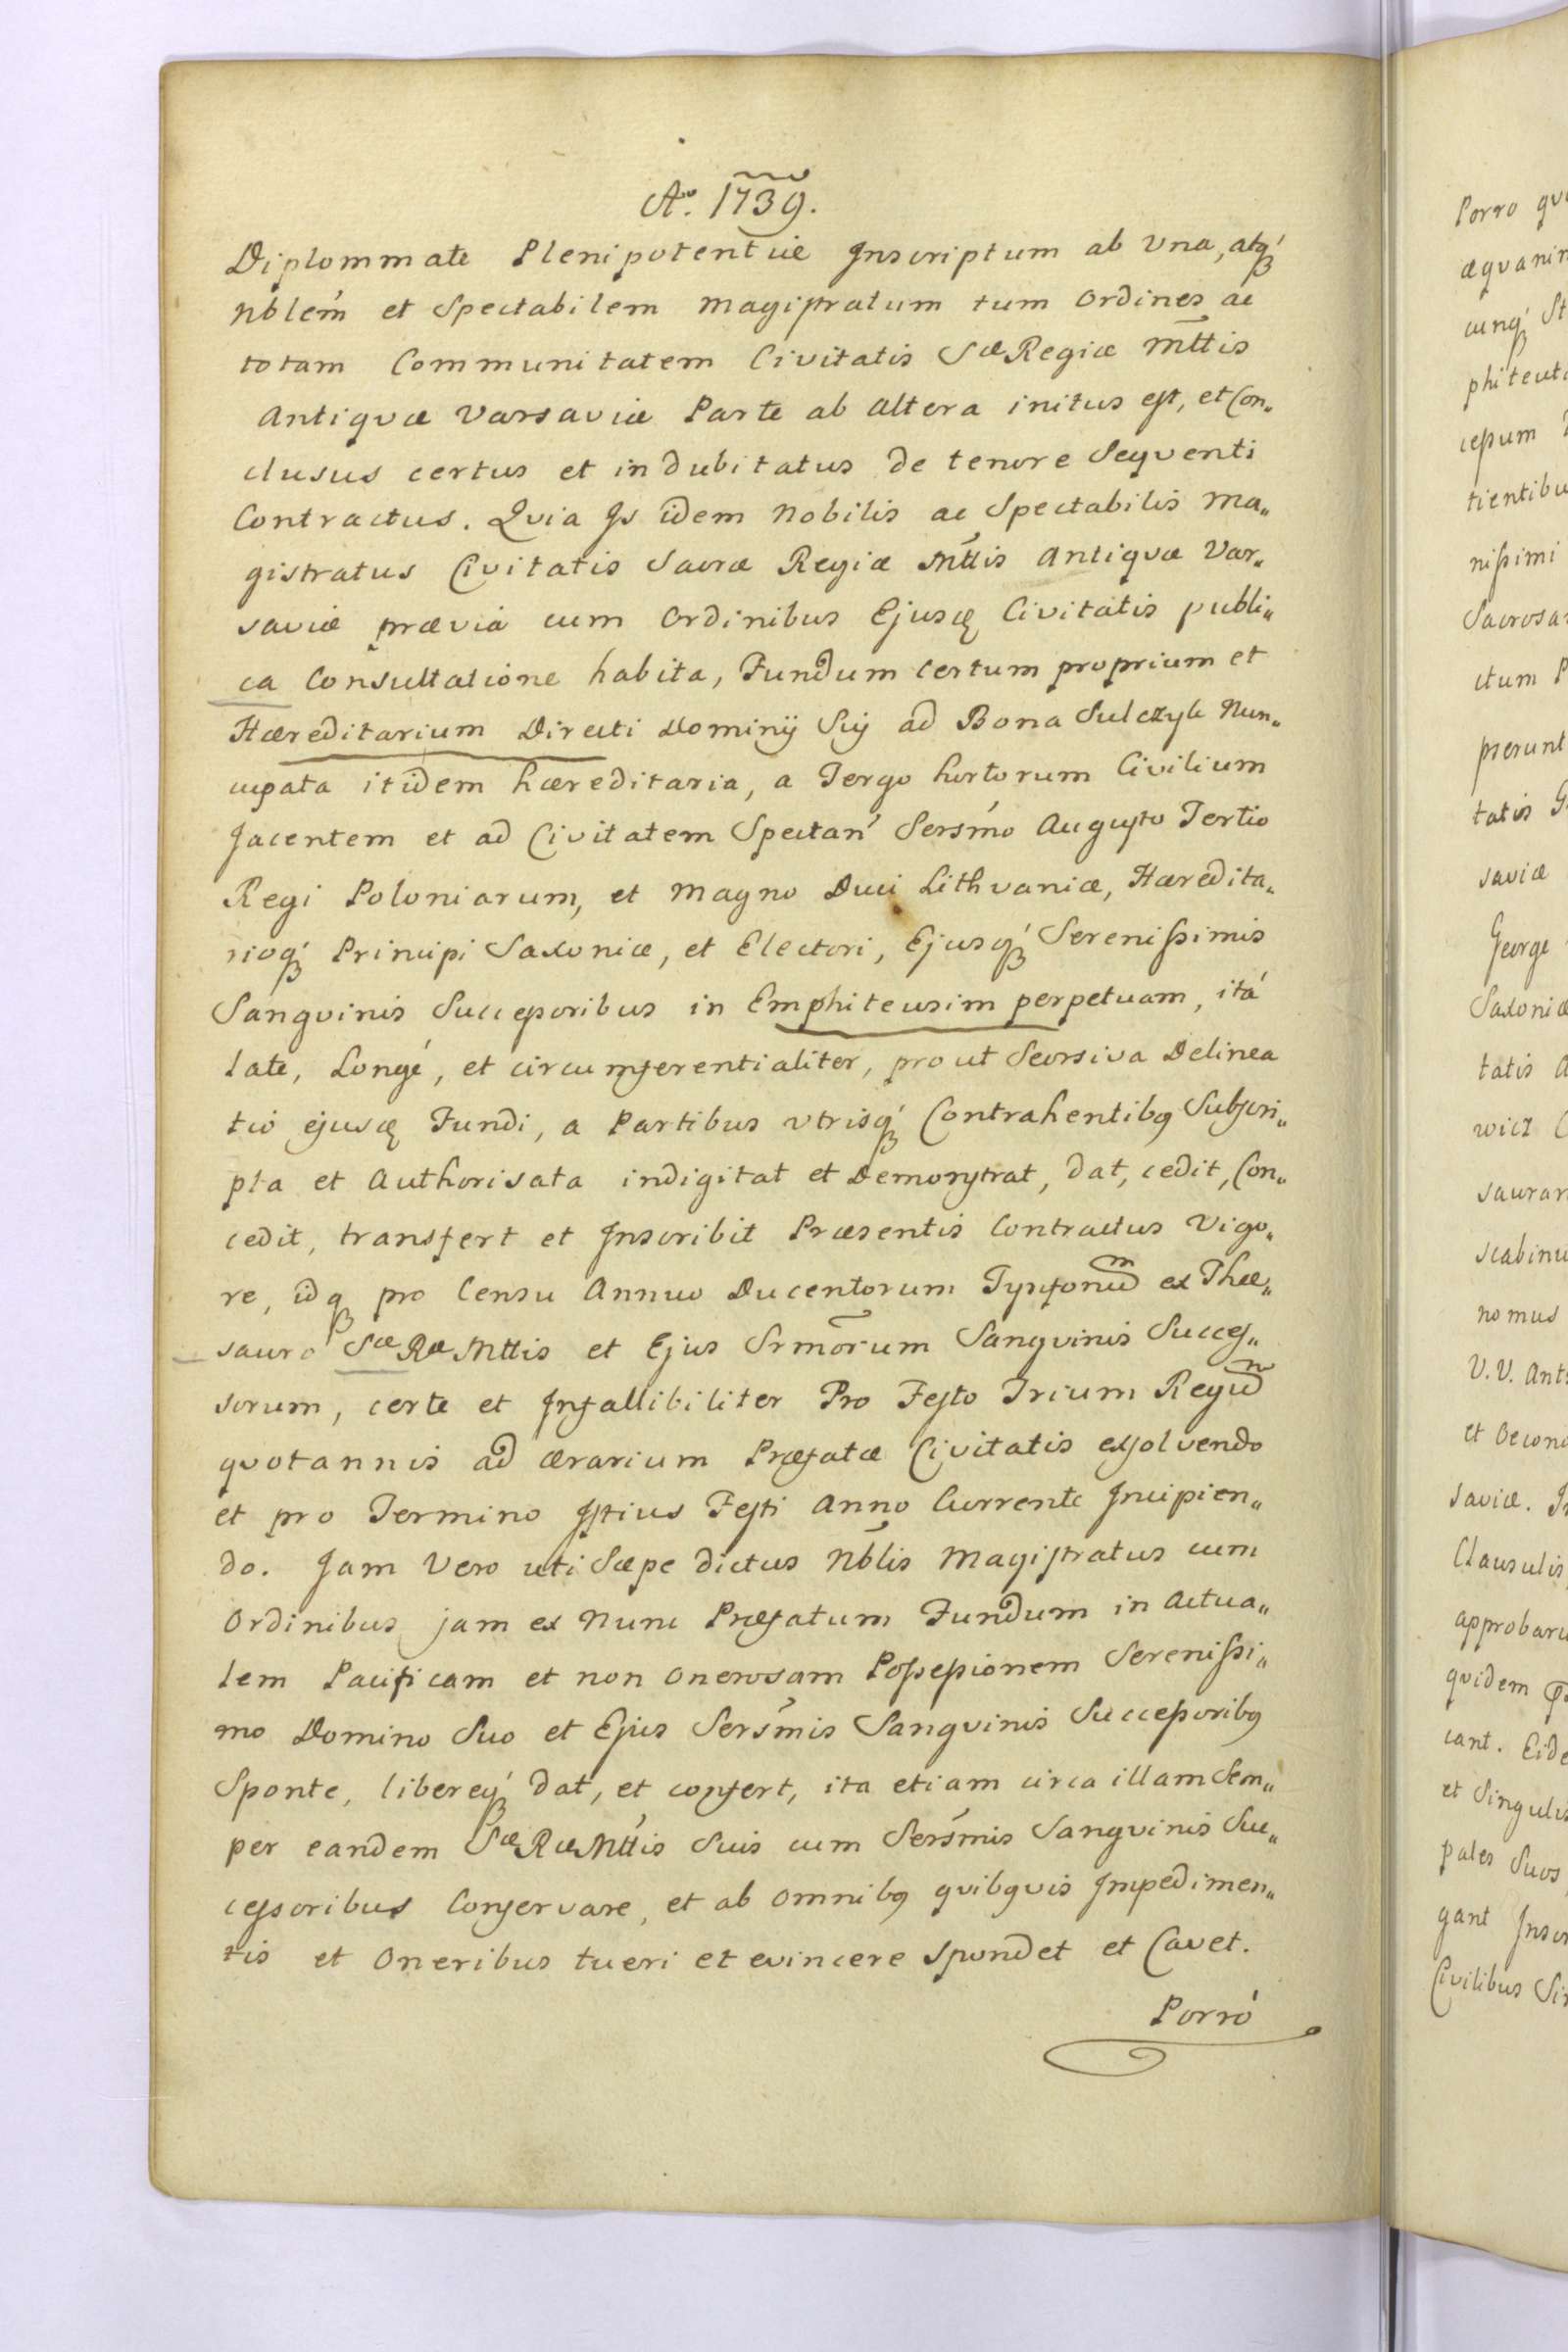 Ao. 1739.
Diplommate Plenipotentiæ Inscriptum ab Una, atq́
Nblem̃ et Spectabilem Magistratum tum Ordines ac
totam Communitatem Civitatis Sæ Regiæ Mttis
Antiquæ Varsaviæ Parte ab altera initus est, et Con„
clusus certus et indubitatus de tenore Sequenti
Contractus. Quia Is idem Nobilis ac Spectabilis Ma„
gistratus Civitatis Sacræ Regiæ Mttis Antiquæ Var„
saviæ præviâ cum Ordinibus Ejusq Civitatis publi„
ca Consultatione habita, Fundum certum proprium et
Hæreditarium Directi Dominij Sui ad Bona Sulczyk Nun„
cupata itidem hæreditaria, a Tergo hortorum Civilium
Jacentem et ad Civitatem Spectan̍ Sersm̍o Augusto Tertio
Regi Poloniarum, et Magno Duci Lithvaniæ, Hæredita„
rioq́ Principi Saxoniæ, et Electori, Ejusq́ Serenissimis
Sanguinis Successoribus in Emphiteusim perpetuam, itá
late, Longé, et circumferentialiter, prout Seorsiva Delinea
tio ejusq Fundi, a Partibus utrisq́ Contrahentibq Subscri„
pta et Authorisata indigitat et Demonstrat, dat, cedit, Con„
cedit, transfert et Inscribit Præsentis Contractus Vigo„
re, idq pro Censu Annuo Ducentorum Tynforum ex Thæ„
sauro Sæ Ræ Mttis et Ejus Srmõrum Sanguinis Succes„
sorum, certe et Infallibiliter Pro Festo Trium Regum
quotannis ad ærarium Præfatæ Civitatis exsolvendo
et pro Termino Istius Festi Anno Currente Incipien„
do. Jam Vero uti Sæpe dictus Nblis Magistratus cum
Ordinibus jam ex Nunc Præfatum Fundum in Actua„
lem Pacificam et non onerosam Possessionem Serenissi„
mo Domino Suo et Ejus Sersm̃is Sanguinis Successoribq
Sponte, libereq́ dat, et confert, ita etiam circa illam Sem„
per eandem Sæ Ræ Mttis Suis cum Sersm̍is Sanguinis Suc„
cessoribus Conservare, et ab omnibq quibquis Impedimen„
tis et Oneribus tueri et evincere Spondet et Cavet.
Porró
Porro
æquanim
cunq́ St
phiteut
cessum
tientibu
nissimi
Sacrosa
ctum P
pserunt
tatis
saviæ
George
Saxoniæ
tatis A
wicz C
saurar
scabinu
nomus
V. V. Ant
et Oecono
saviæ.
Clausulis
approbaru
quidem
cant. Eide
et Singulis
pales Suos
gant Inscr
Civilibus Si